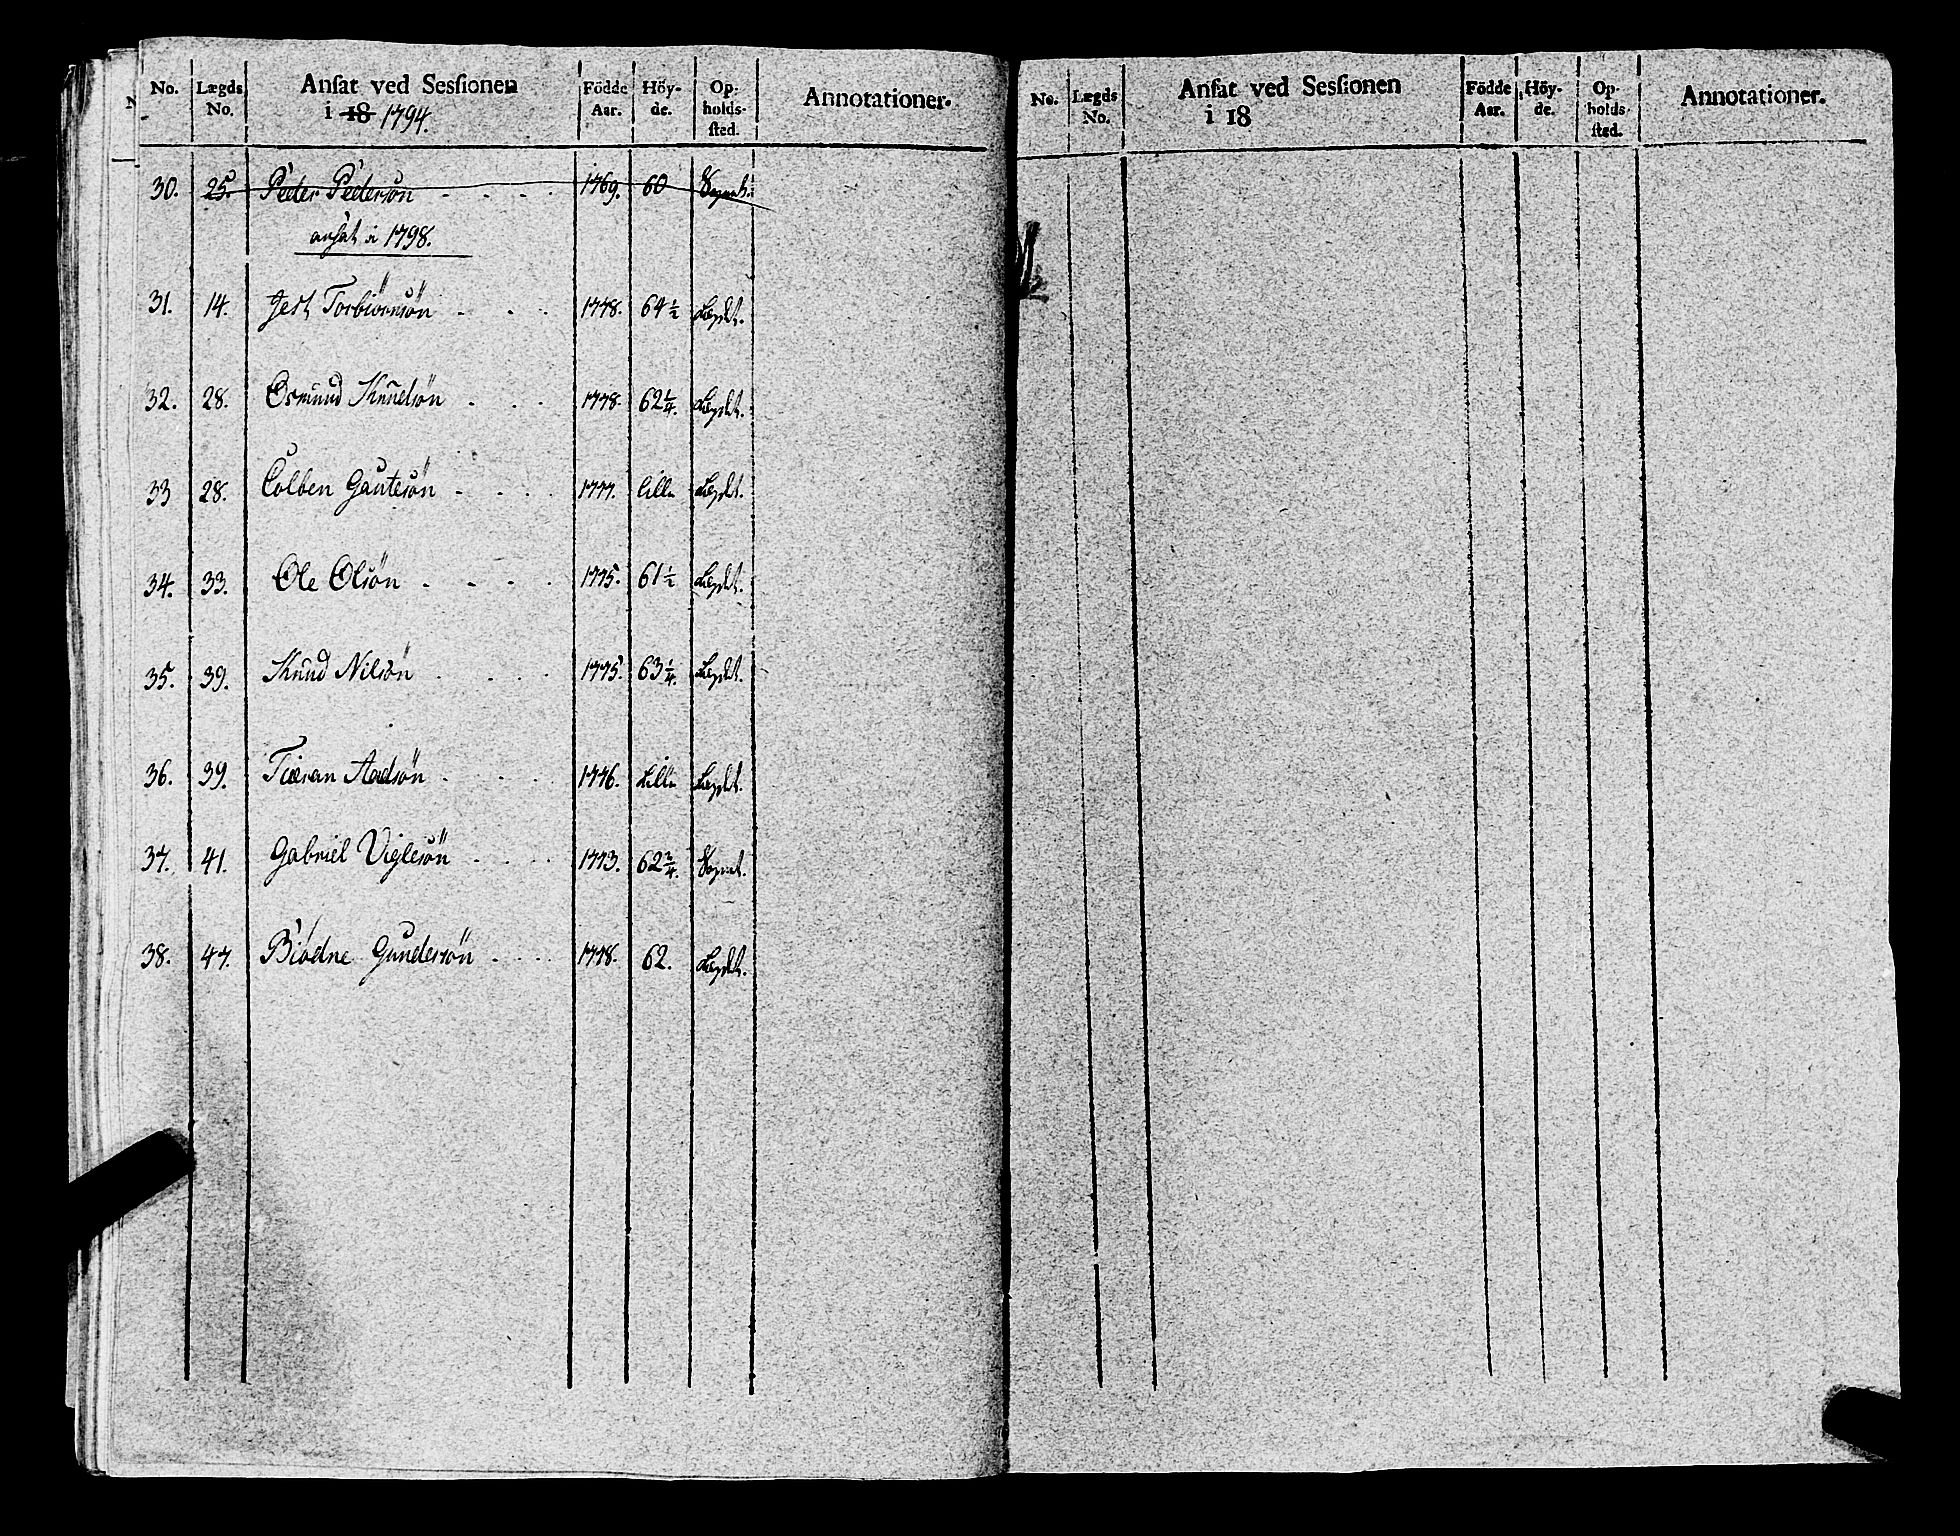 No. Lægds No. Ansat ved Sessionen i 18 1794. Födde Aar. Höy-de. Op-holds-sted. Annotationer.
30. 25. Peder Pedersön - - - - 1769. 60
ansat i 1798.
31. 14. Torbiörnsön - - - 1778. 64 1/2 Lægdet.
32. 28. Osmund Knudsön - - - 1778. 62 1/4. Lægdet.
33 28. Colben Gautesön - - - - 1777. lille Lægdet.
34. 33. Ole Olsön - - - - 1775. 61 1/2 Lægdet.
35. 39. Knud Nilsön - - - - 1775. 63 1/4. Lægdet.
36. 39. Tieran Aadsön - - - - 1776. Lille Lægdet.
37. 41. Gabriel Viglesön - - - - 1773. 62 3/4. Sognet.
38. 47. Biödne Gundersön - - - - 1778. 62. Lægdet.
No. Lægds No. Ansat ved Sessionen i 18 Födde Aar. Höy-de. Op-holds-sted. Annotationer.